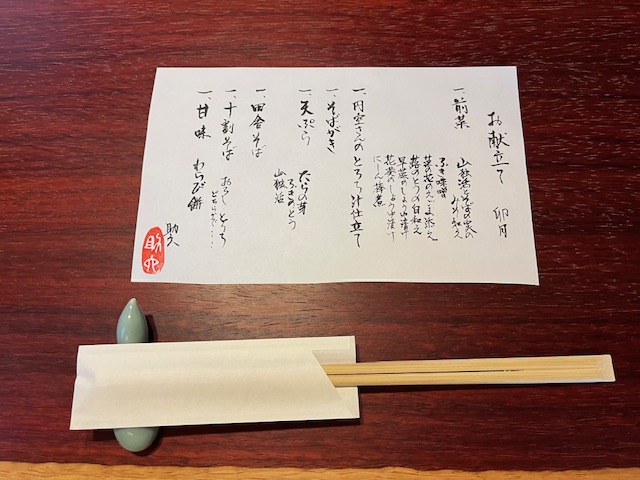 お献立て 卯月
一、前菜
山独活とそばの実の
みそ和え
ふき味噌
菜の花のえごま浸し
蕗のとうの白和え
早蕨のしょうゆ漬け
花菜のしょうゆ漬け
にしん蕗煮
一、円空さんのとろろ汁仕立て
一、そばがき
一、天ぷら
たらの芽
ふきのとう
山独活
一、田舎そば
一、十割そば おろし とろろ
どちらかで・・・
一、甘味 わらび餅
助六
助六